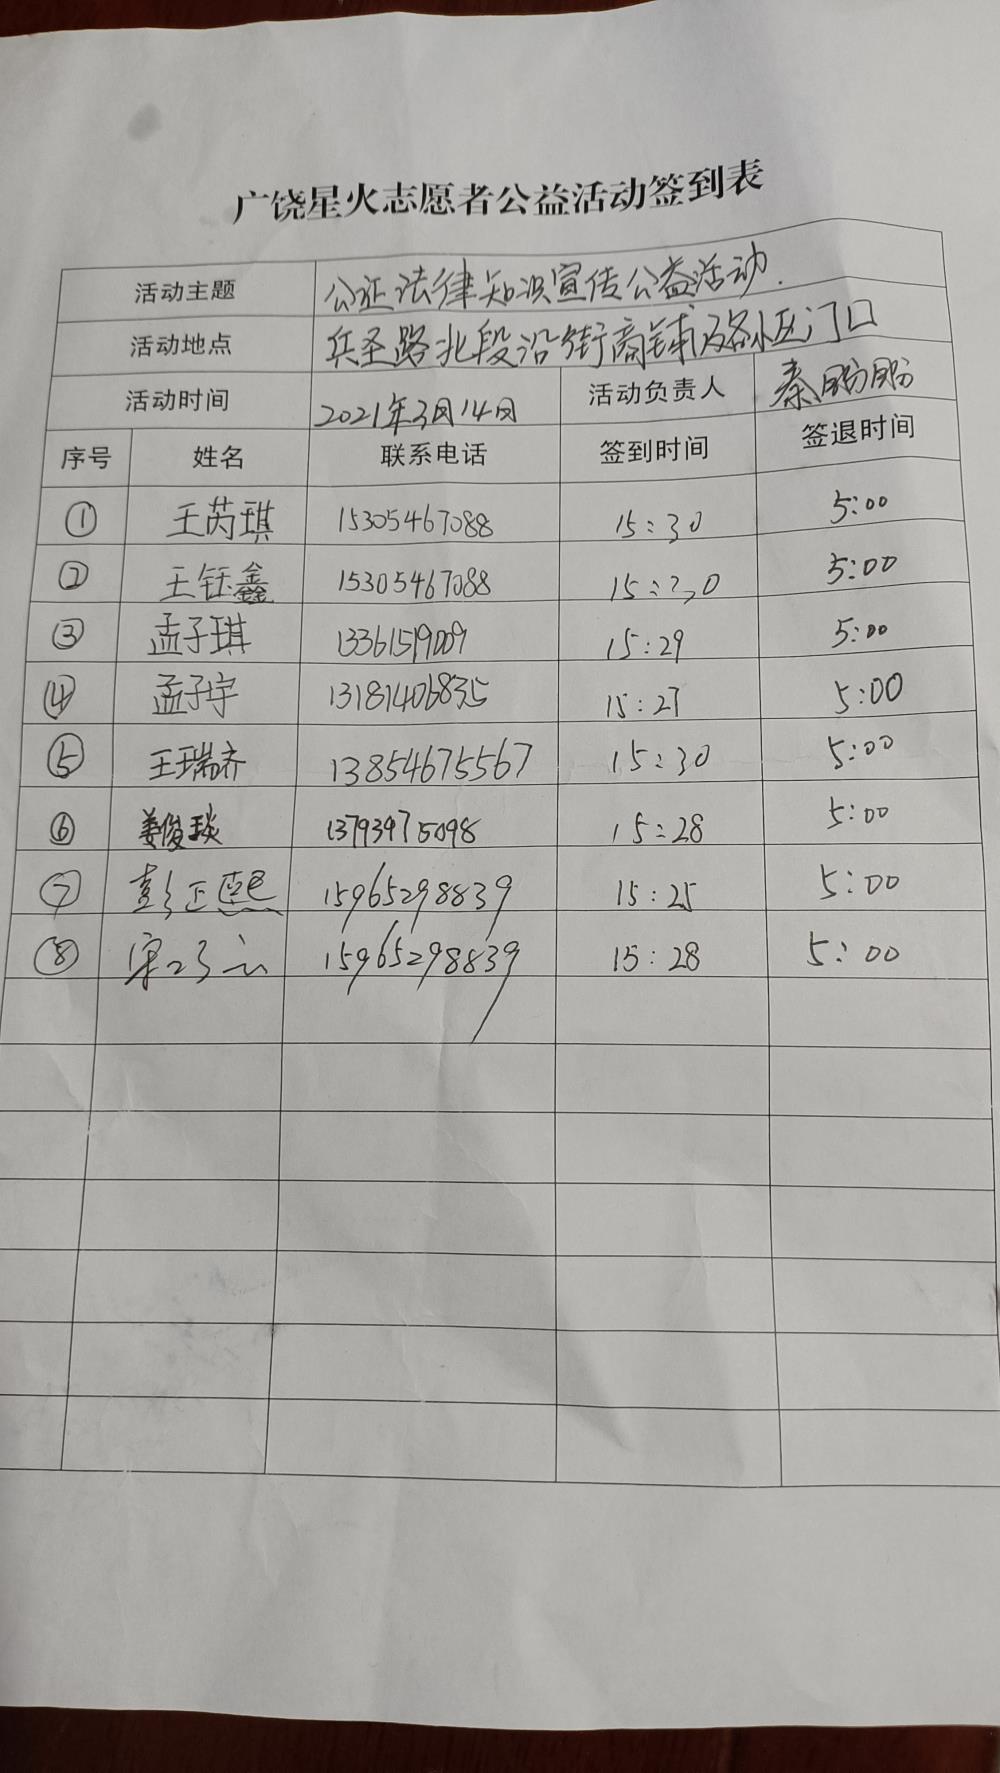 广饶星火志愿者公益活动签到表
活动主题 公证法律知识宣传公益活动.
活动地点 兵圣路北段沿街商铺及各小区门口
活动时间 2021年3月14日 活动负责人 秦盼盼
序号 姓名 联系电话 签到时间 签退时间
① 王芮琪 15305467088 15:30 5:00
② 王钰鑫 15305467088 15:30 5:00
③ 孟子琪 13361519009 15:29 5:00
④ 孟子宇 13181406835 15:27 5:00
⑤ 王瑞齐 13854675567 15:30 5:00
⑥ 姜俊琰 13793975098 15:28 5:00
⑦ 彭正熙 15965298839 15:25 5:00
⑧ 15965298839 15:28 5:00